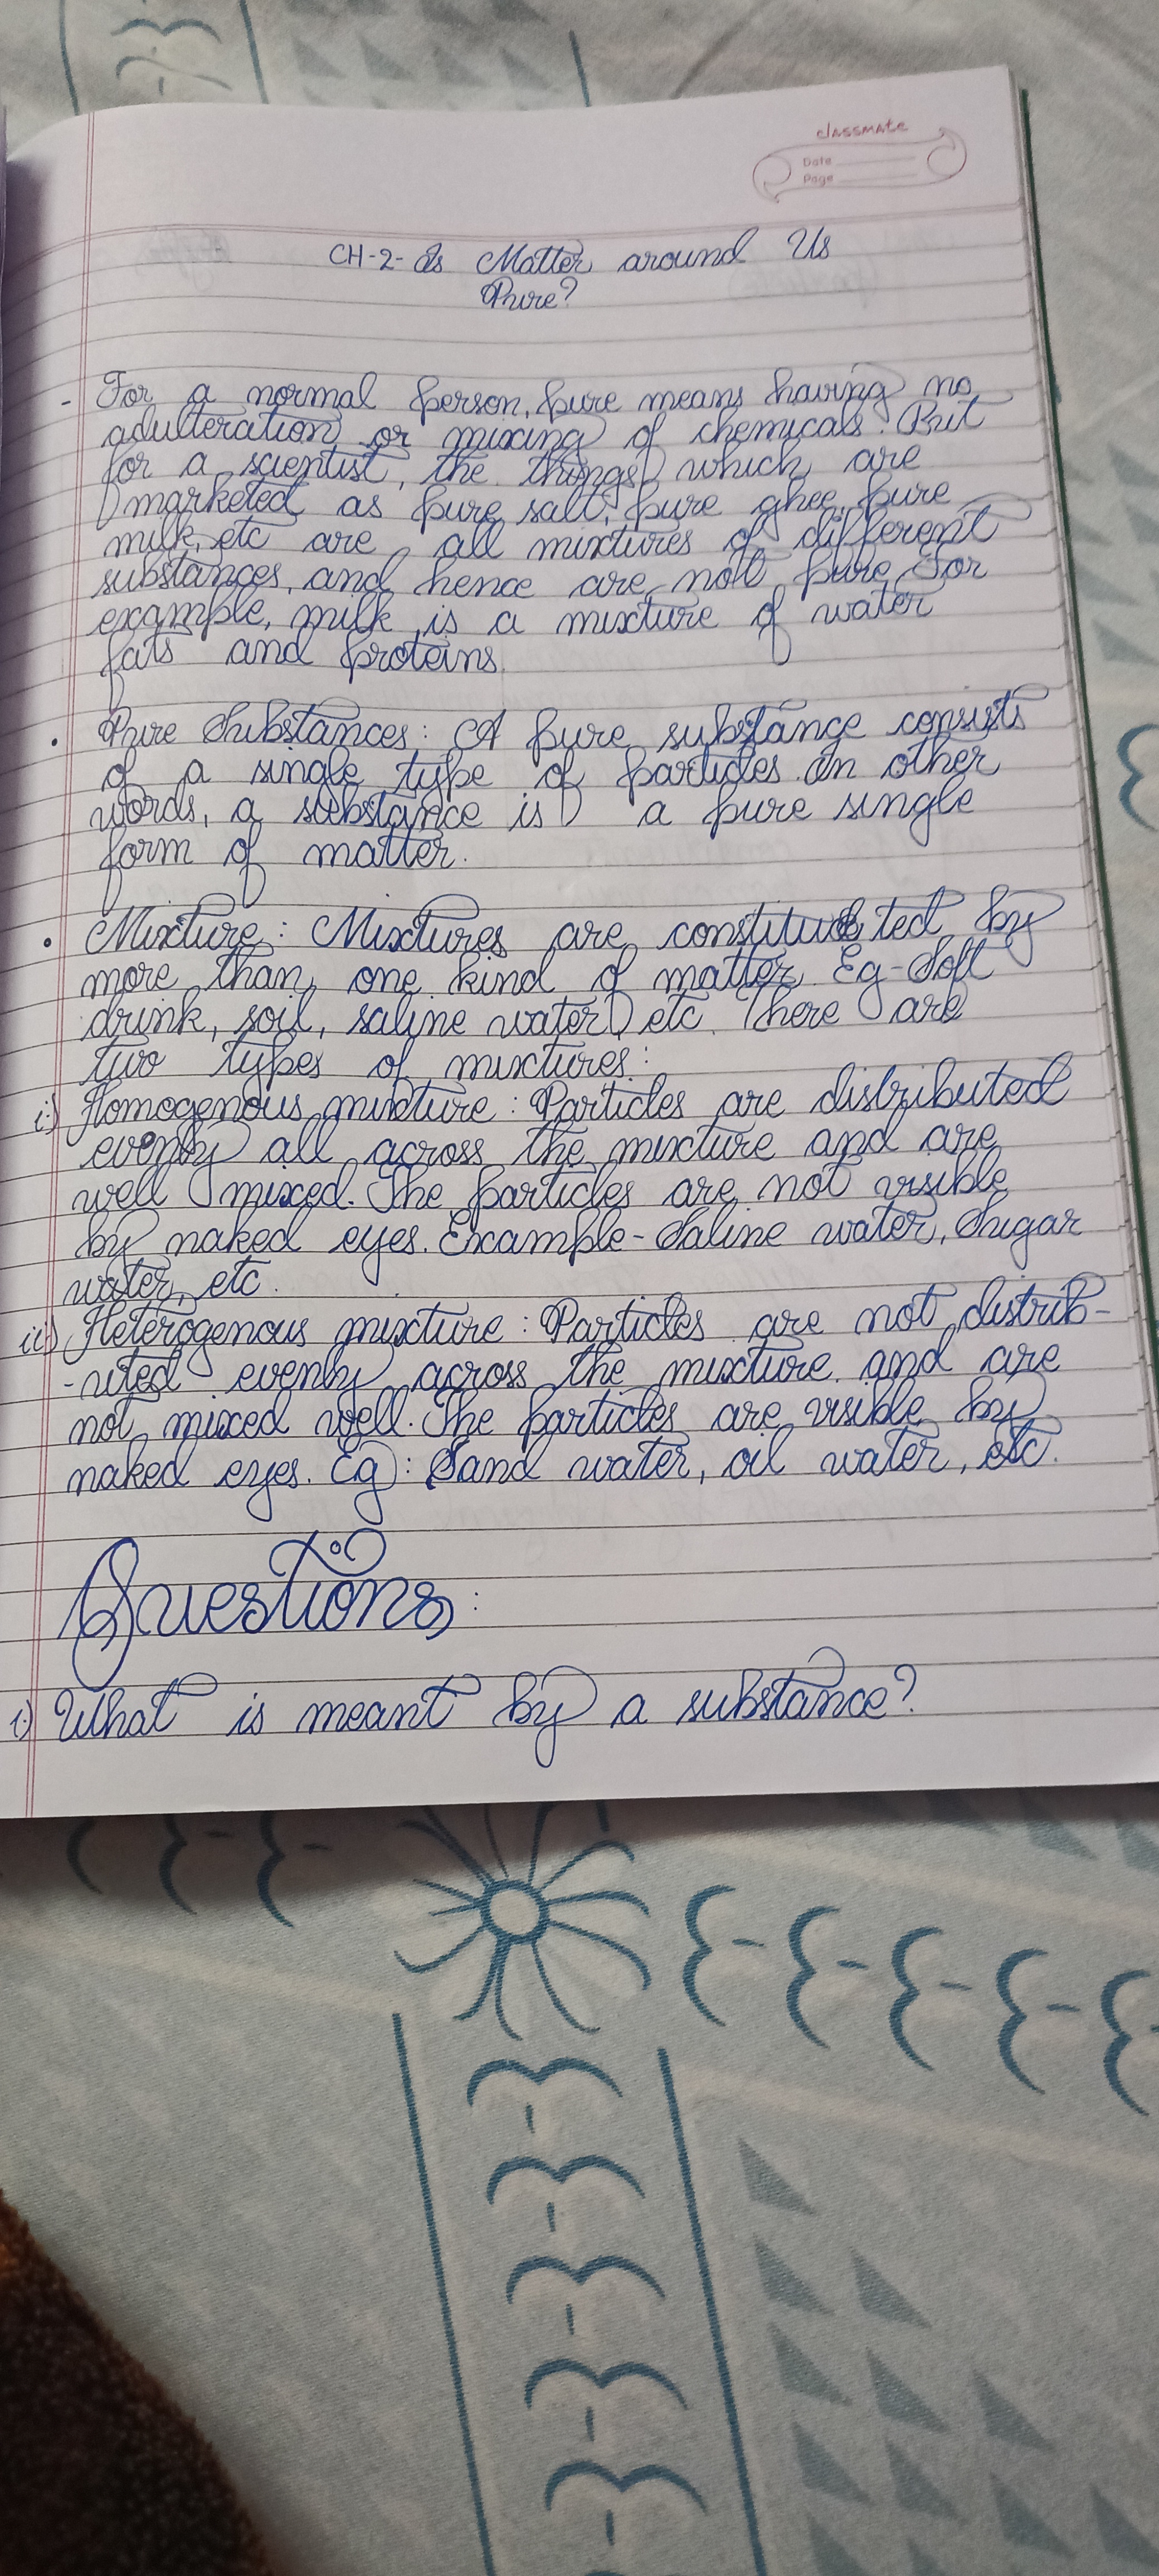 classmate
Date
Page
CH-2- Is Matter around Us
Pure?
- For a normal person, pure means having no
adulteration or mixing of chemicals. But
for a scientist, the things which are
marketed as pure salt, pure ghee, pure
milk, etc are all mixtures of different
substances, and hence are not pure. For
example, milk is a mixture of water
fats and proteins.
• Pure Substances: A pure substance consists
of a single type of particles. In other
words, a substance is a pure single
form of matter.
• Mixture: Mixtures are constituted by
more than one kind of matter. Eg - Soft
drink, soil, saline water, etc. There are
two types of mixtures:
i) Homogenous mixture: Particles are distributed
evenly all across the mixture and are
well mixed. The particles are not visible
by naked eyes. Example - Saline water, Sugar
water, etc.
ii) Heterogenous mixture: Particles are not distrib-
-uted evenly across the mixture and are
not mixed well. The particles are visible by
naked eyes. Eg: Sand water, oil water, etc.
Questions:
i) What is meant by a substance?